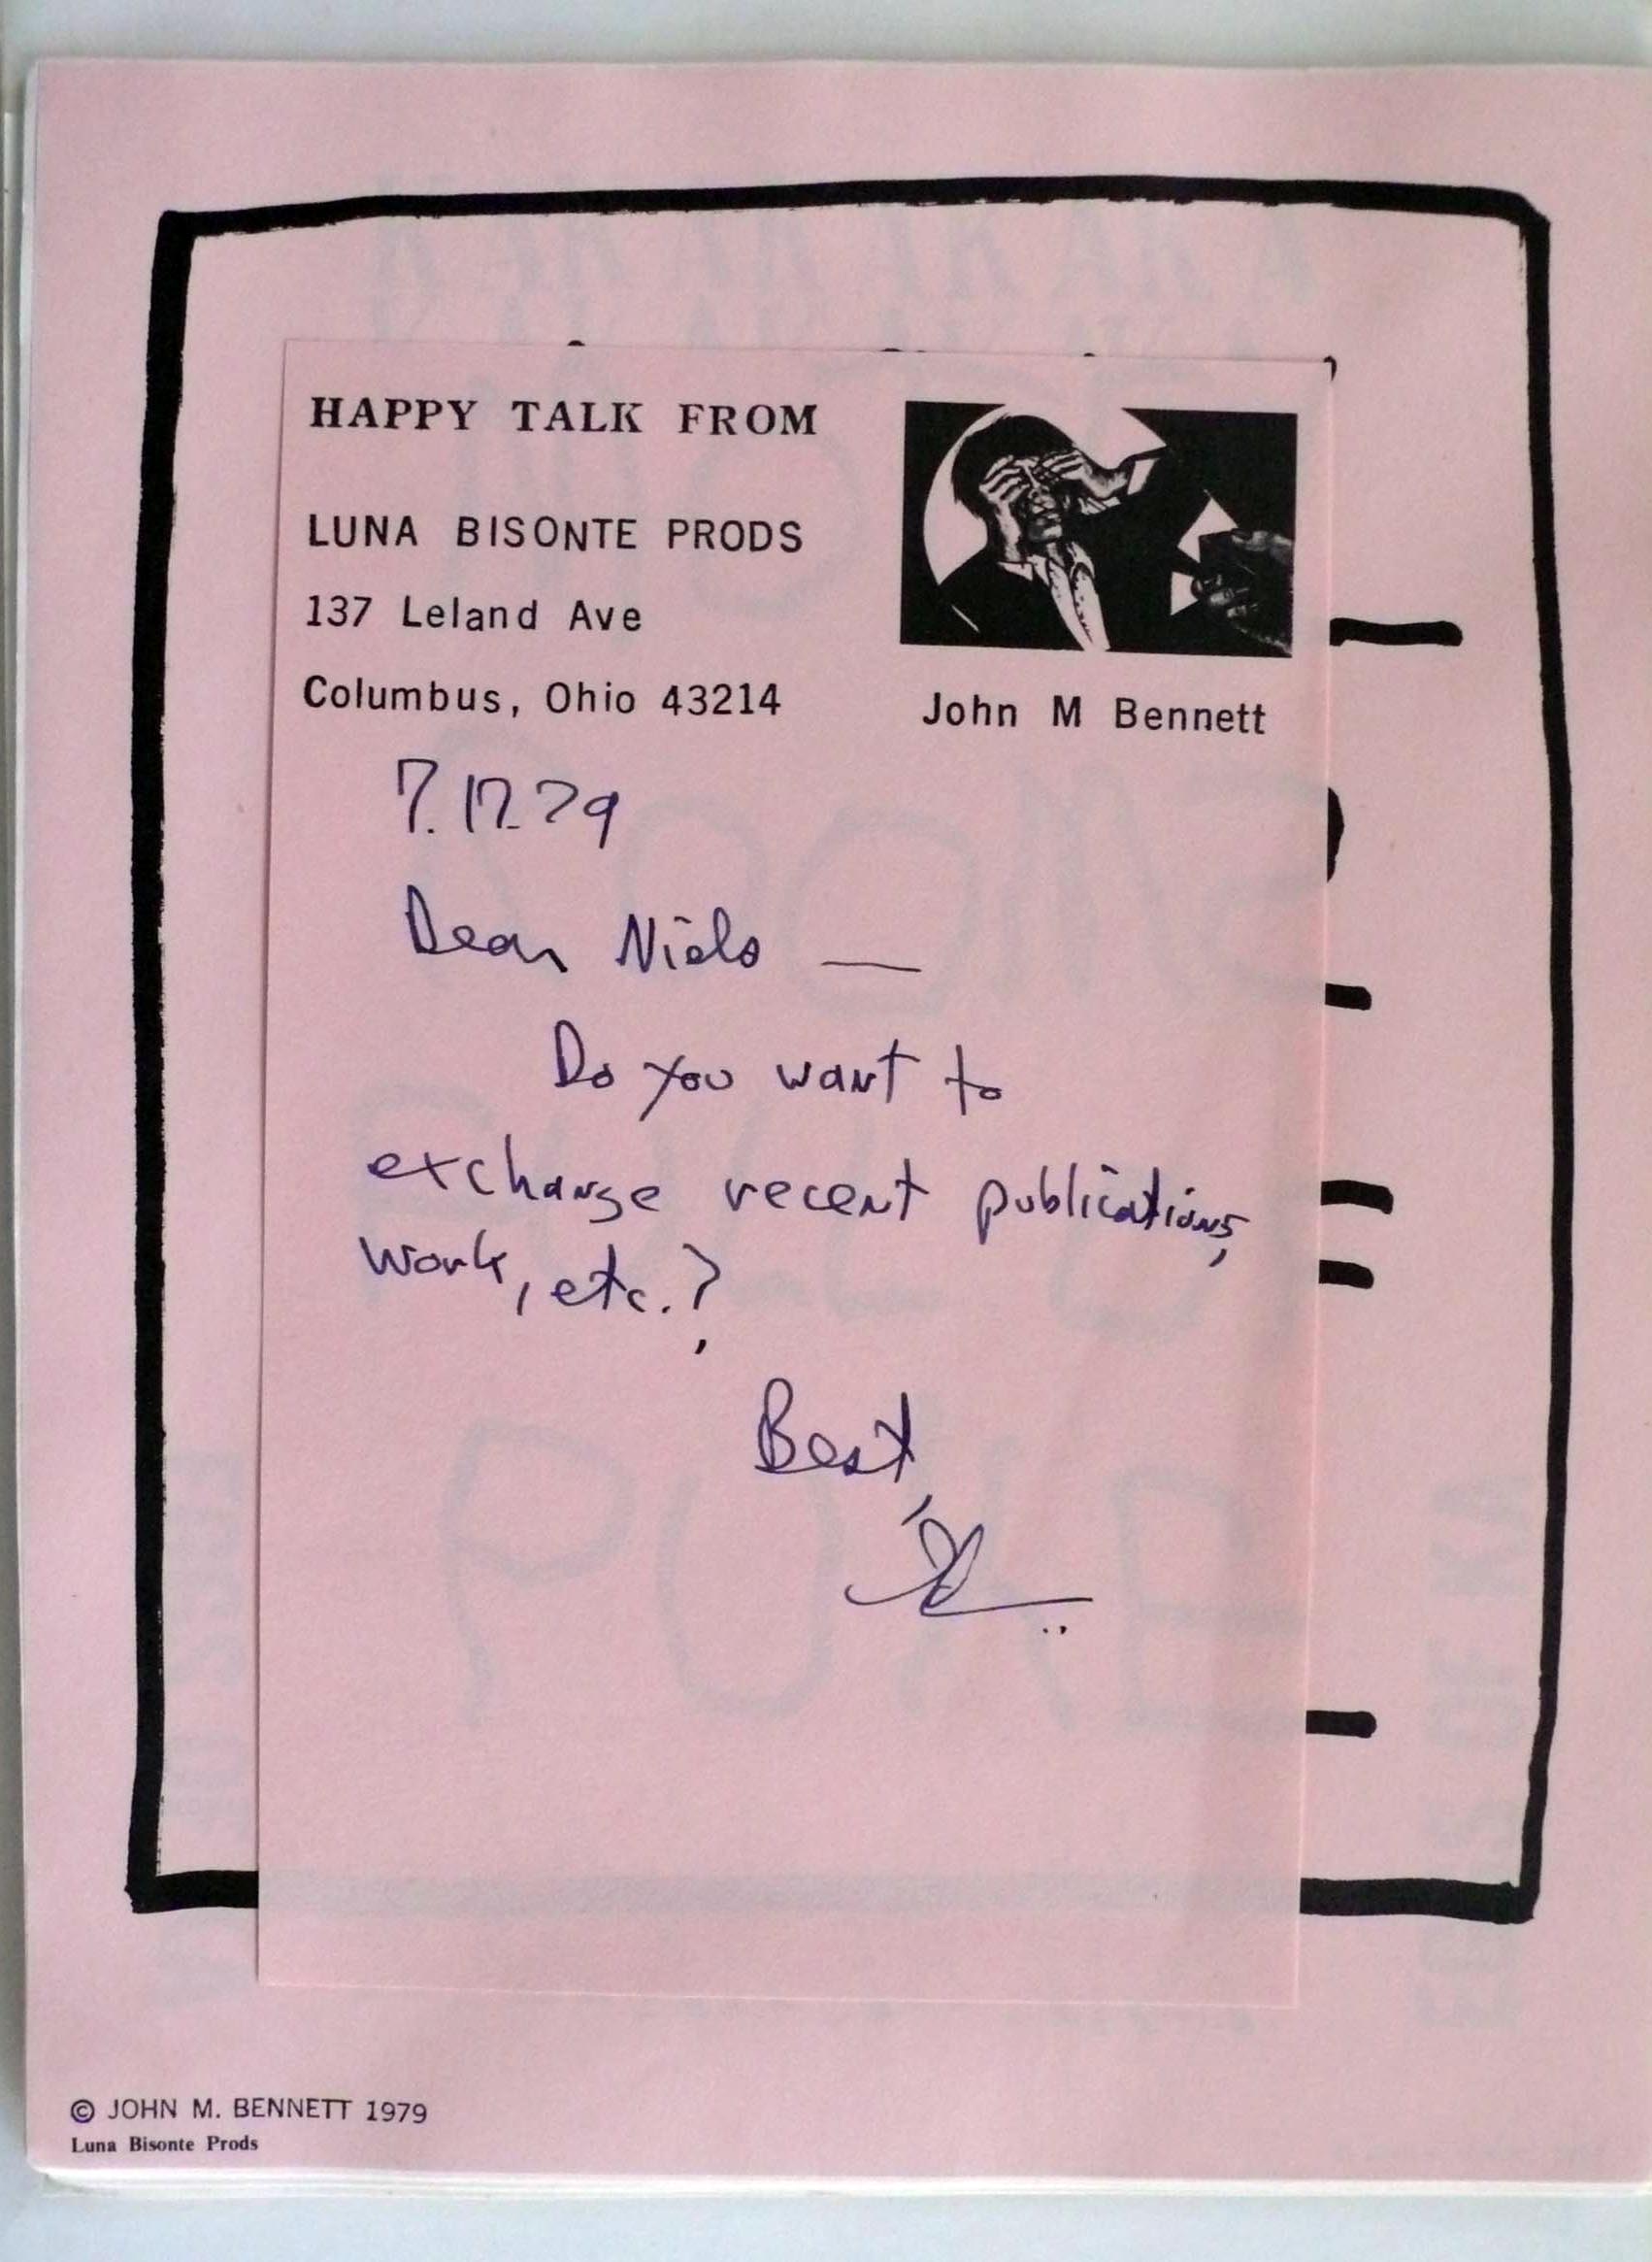 HAPPY TALK FROM
LUNA BISONTE PRODS
137 Leland Ave
Columbus, Ohio 43214
John M Bennett
7.17.79
Dear Niels —
Do you want to
exchange recent publications,
work, etc.?
Best,
© JOHN M. BENNETT 1979
Luna Bisonte Prods